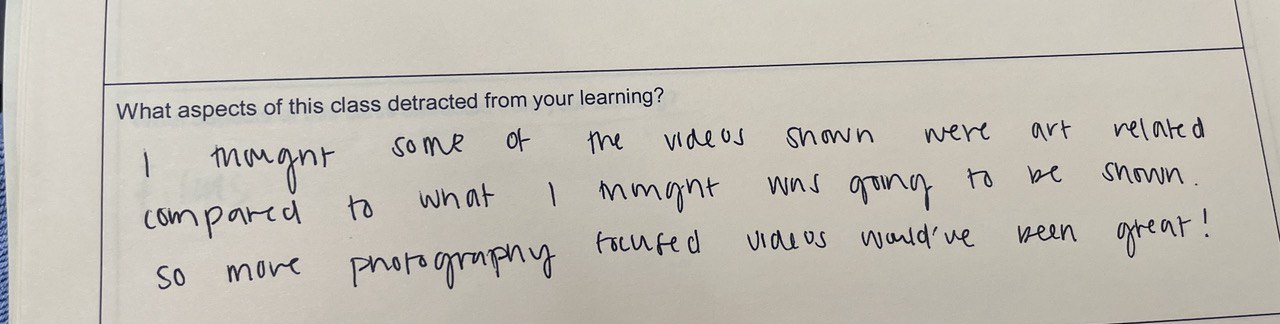 What aspects of this class detracted from your learning?
I thought some of the videos shown were art related
compared to what I thought was going to be shown.
So more photography focused videos would've been great!